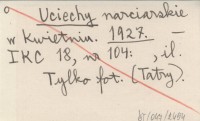 Uciechy narciarskie
w kwietniu. 1927. —
IKC 18, nr 104: , il.
Tylko fot. (Tatry).